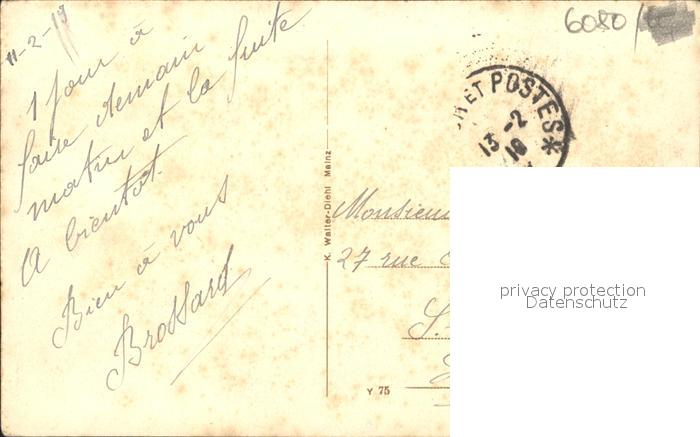 11-2-19
1 jour à
faire demain
matin et la suite
A bientot.
Bien à vous
Brossard
6080/
ET POSTES *
13 -2
19
K. Walter-Diehl Mainz
Monsieur
27 rue
S.
Y 75
privacy protection
Datenschutz